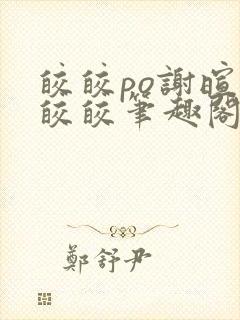 皎皎po謝暄
皎皎筆趣閣
鄭舒尹